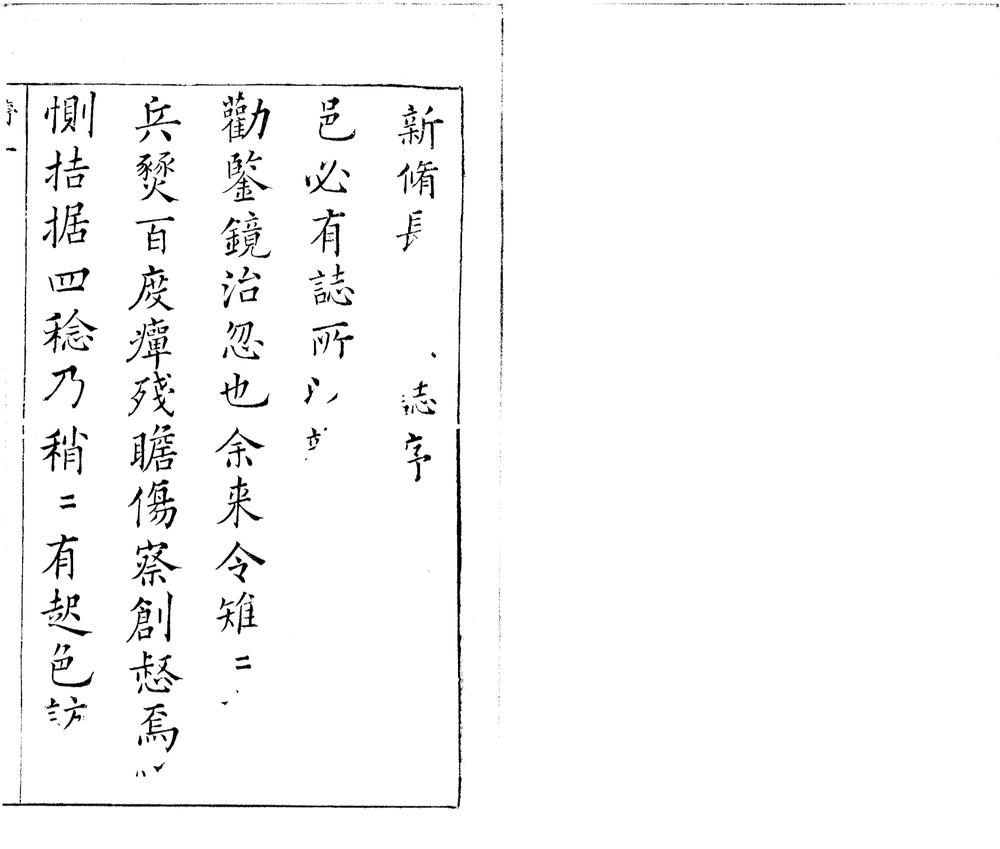 新脩長誌序
邑必有誌所
勸鑒鏡治忽也余来令雉〻
兵燹百度癉殘瞻傷察創惄焉
惻拮据四稔乃稍〻有起色訪